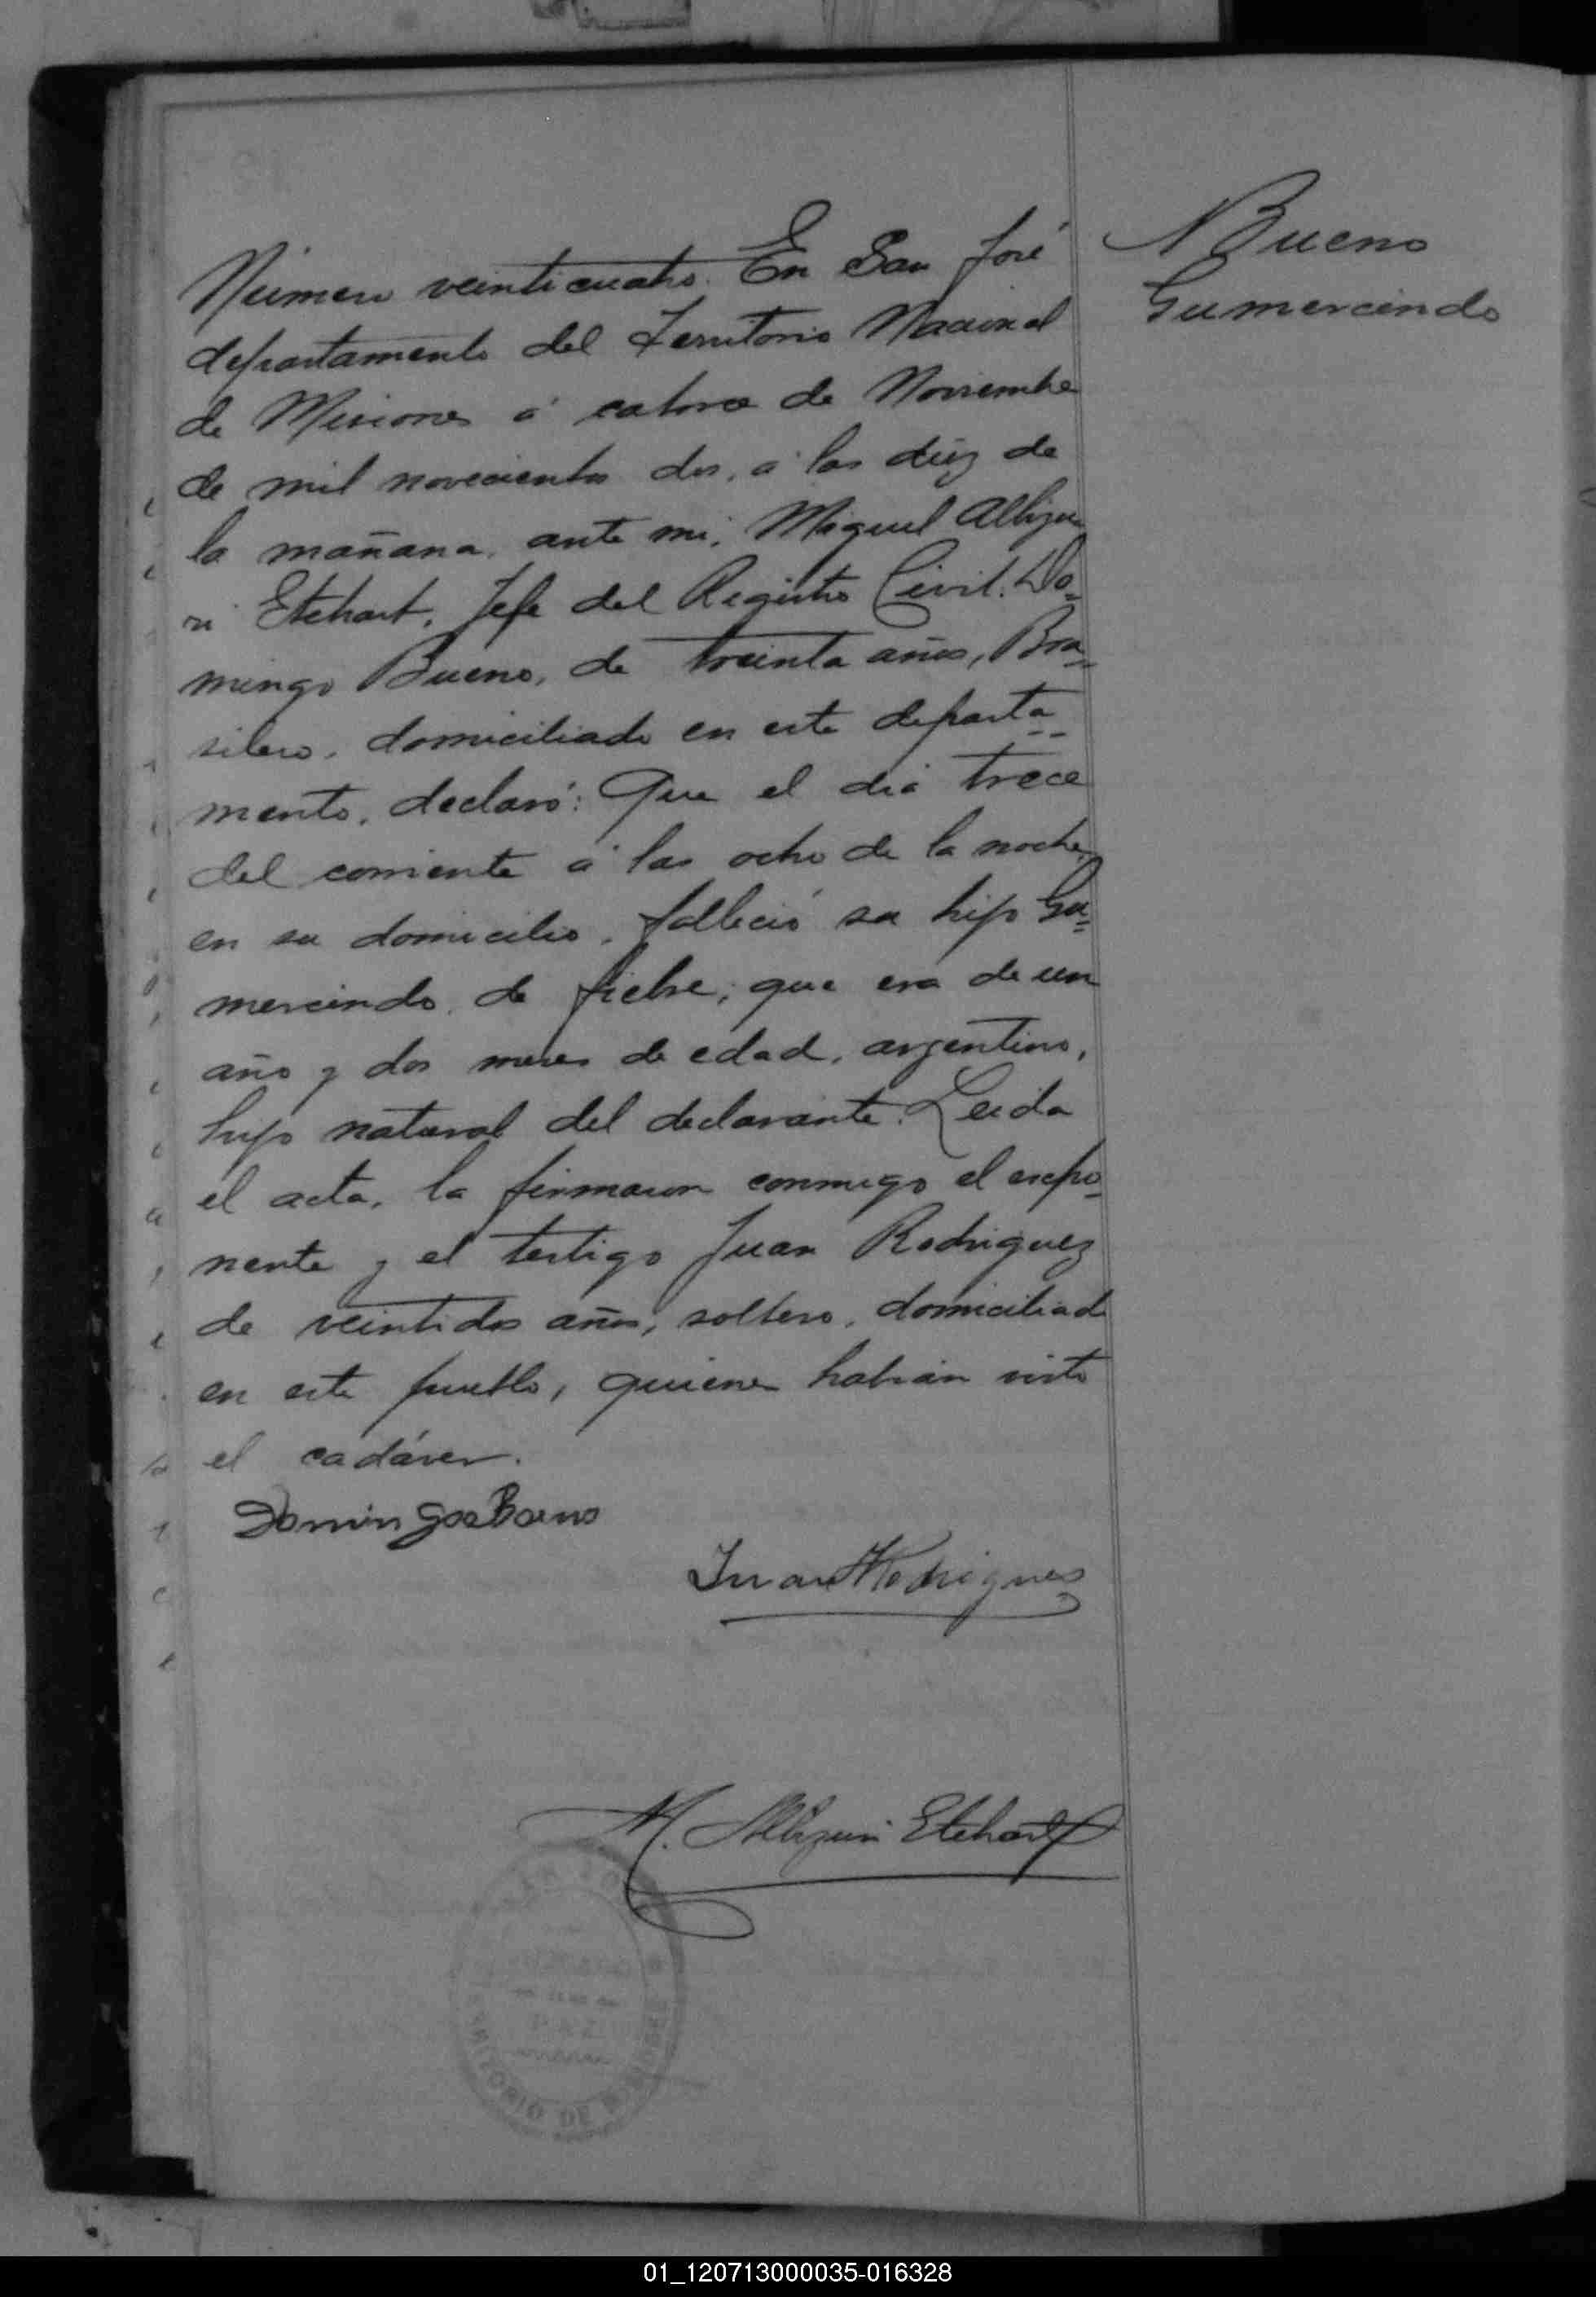 Número veinticuatro. En San José
departamento del Territorio Nacional
de Misiones á catorce de Noviembre
de mil novecientos dos, á las diez de
la mañana, ante mi, Miguel Albizu
ri Etchart, Jefe del Registro Civil. Do=
mingo Bueno, de treinta años, Bra=
silero, domiciliado en este departa=
mento, declaró: Que el dia trece
del corriente á las ocho de la noche,
en su domicilio, falleció su hijo Gu=
mercindo, de fiebre; que era de un
año y dos meses de edad, argentino,
hijo natural del declarante. Leida
el acta, la firmaron conmigo el expo=
nente y el testigo Juan Rodriguez
de veintidos años, soltero, domiciliado
en este pueblo, quienes habian visto
el cadáver.
Domingos Bueno
Juan Rodrigues
M. Albizuri Etchart
Bueno
Gumercindo
TERRITORIO DE MISIONES
01_120713000035-016328